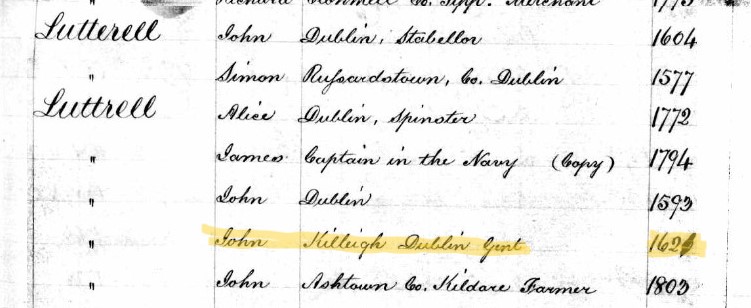 " Richard Co. Tipp. Merchant
Lutterell John Dublin, Stabellor 1604
" Simon Russardstown, Co. Dublin 1577
Luttrell Alice Dublin, Spinster 1772
" James Captain in the Navy (Copy) 1794
" John Dublin 1593
" John Killeigh Dublin Gent
" John Ashtown Co. Kildare Farmer 1803